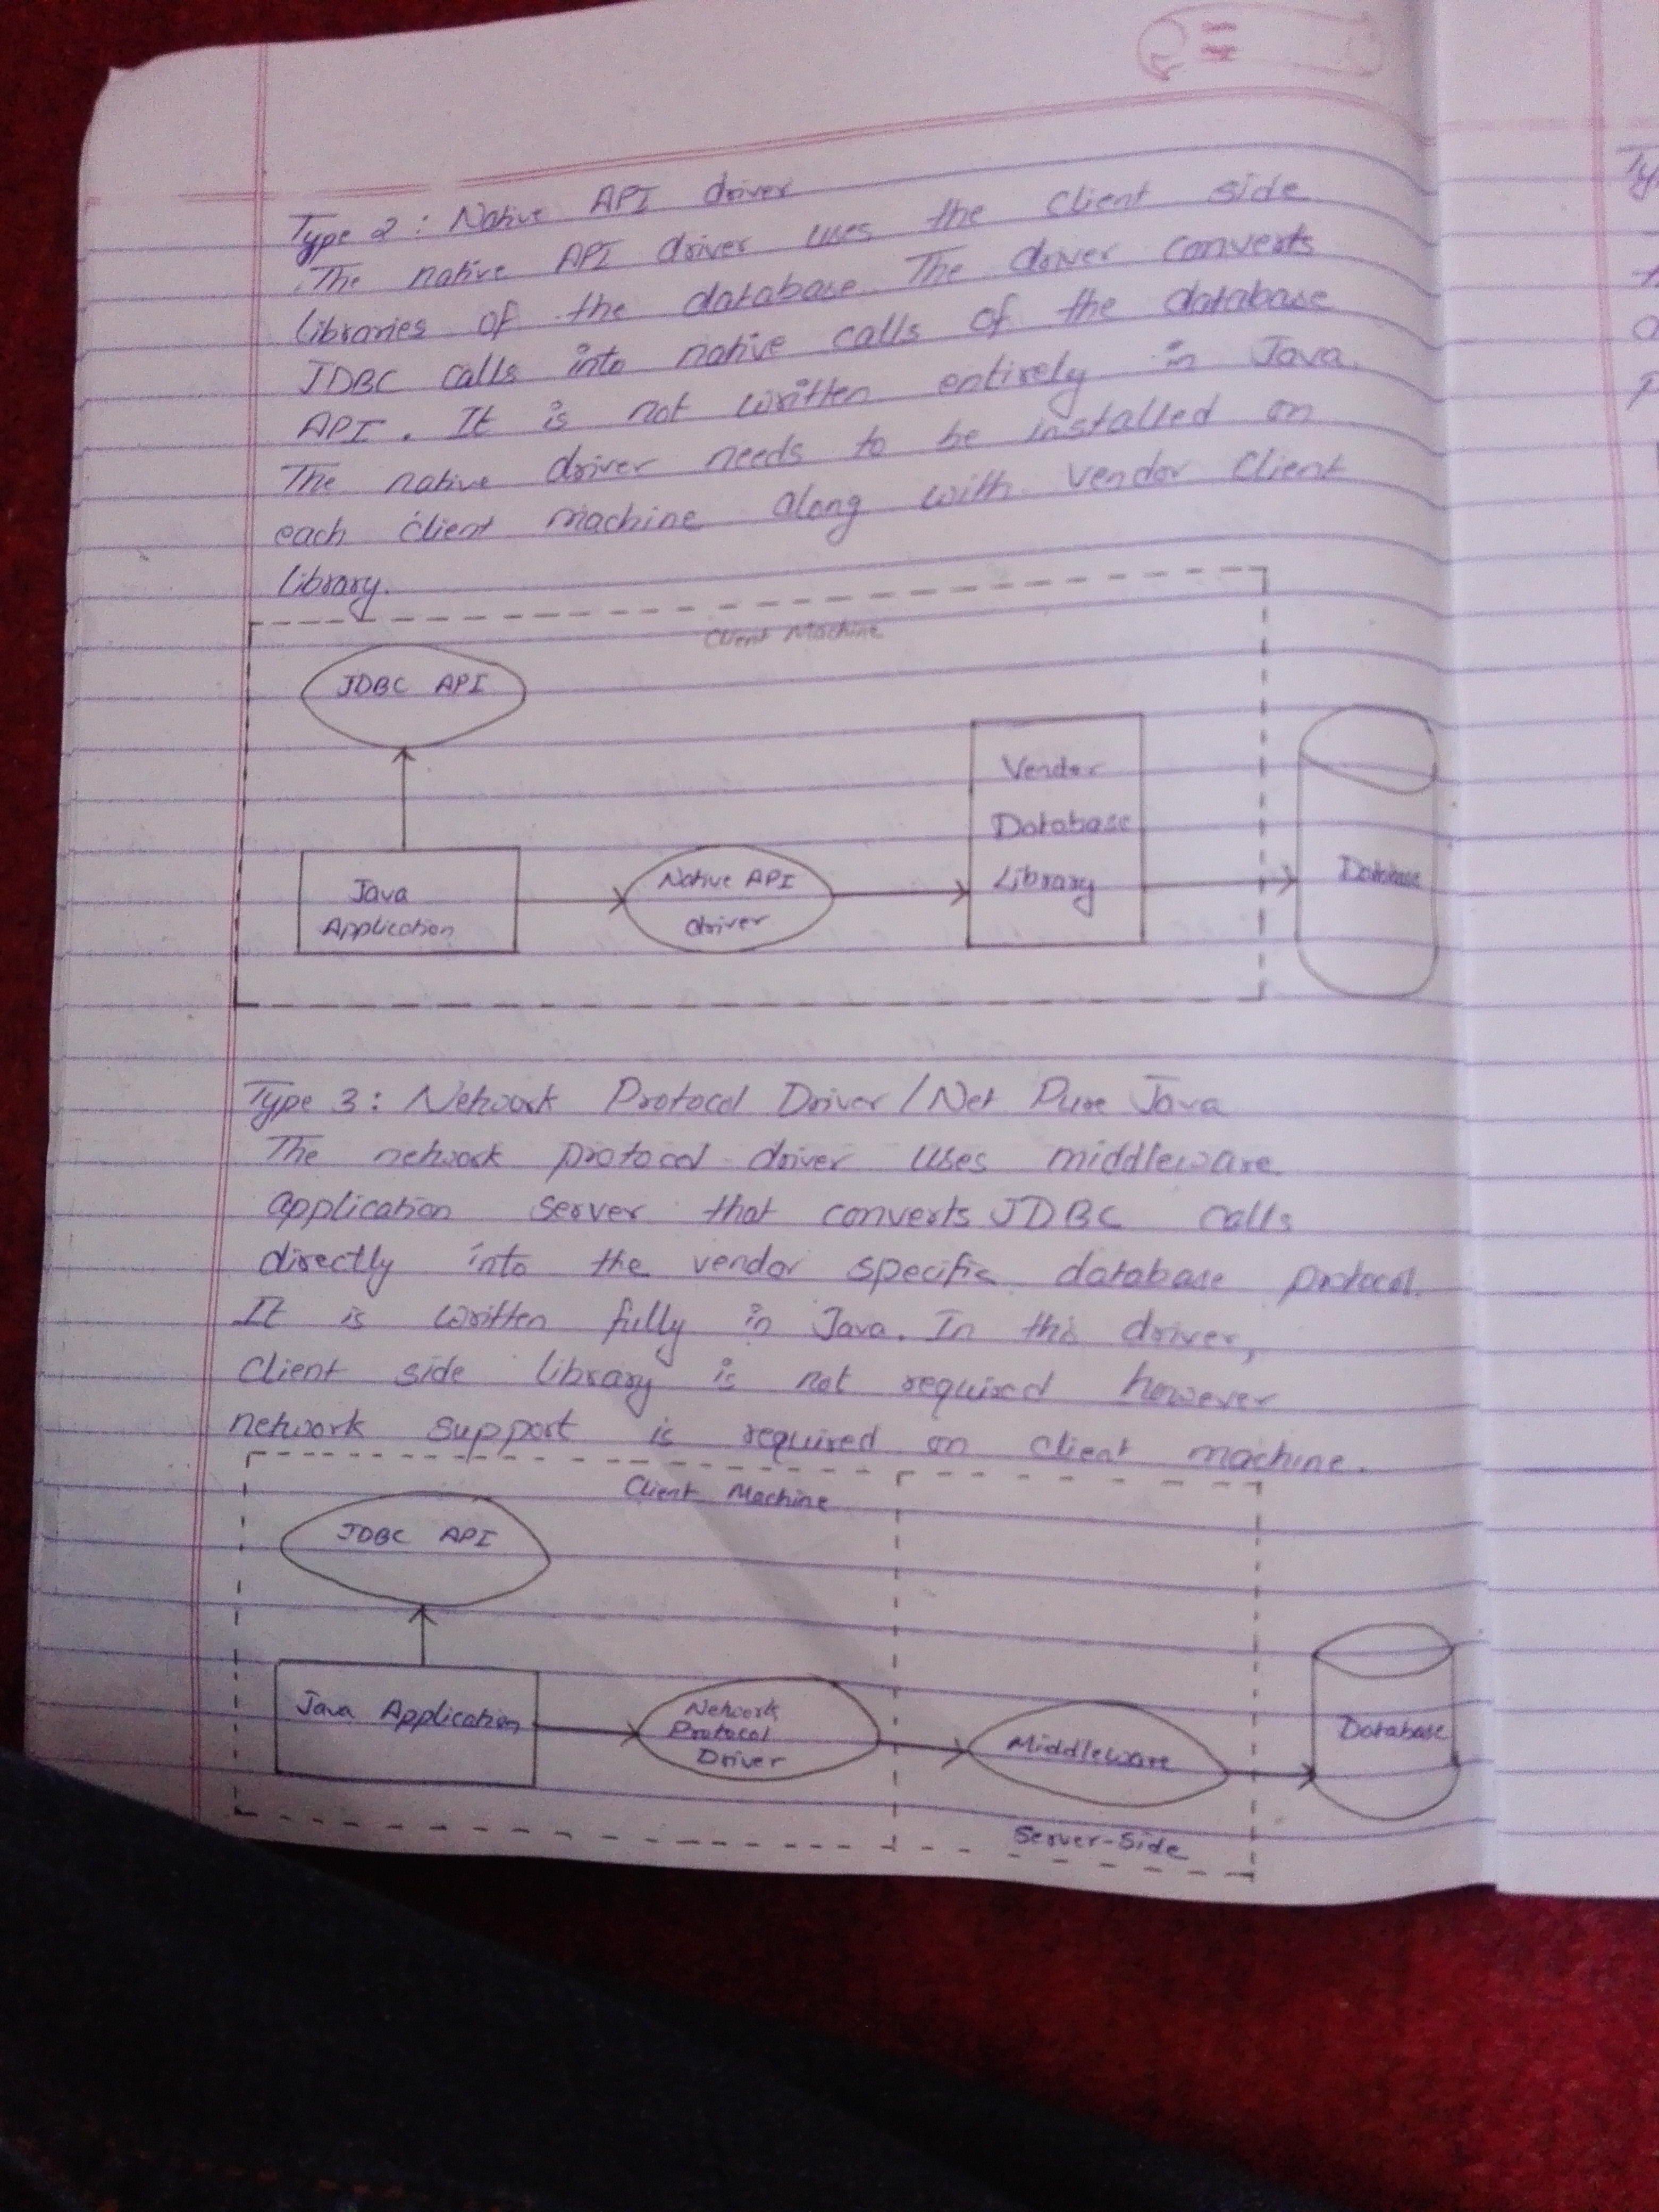 Type 2 : Native API driver
The native API driver uses the client side
libraries of the database. The driver converts
JDBC calls into native calls of the database
API. It is not written entirely in Java.
The native driver needs to be installed on
each client machine along with vendor client
library.
Client Machine
JDBC API
Vendor
Database
Library
Java
Application
Native API
driver
Database
Type 3: Network Protocol Driver / Net Pure Java
The network protocol driver uses middleware
application server that converts JDBC calls
directly into the vendor specific database protocol.
It is written fully in Java. In this driver,
client side library is not required however
network support is required on client machine.
Client Machine
JDBC API
Java Application
Network
Protocol
Driver
Middleware
Database
Server-Side